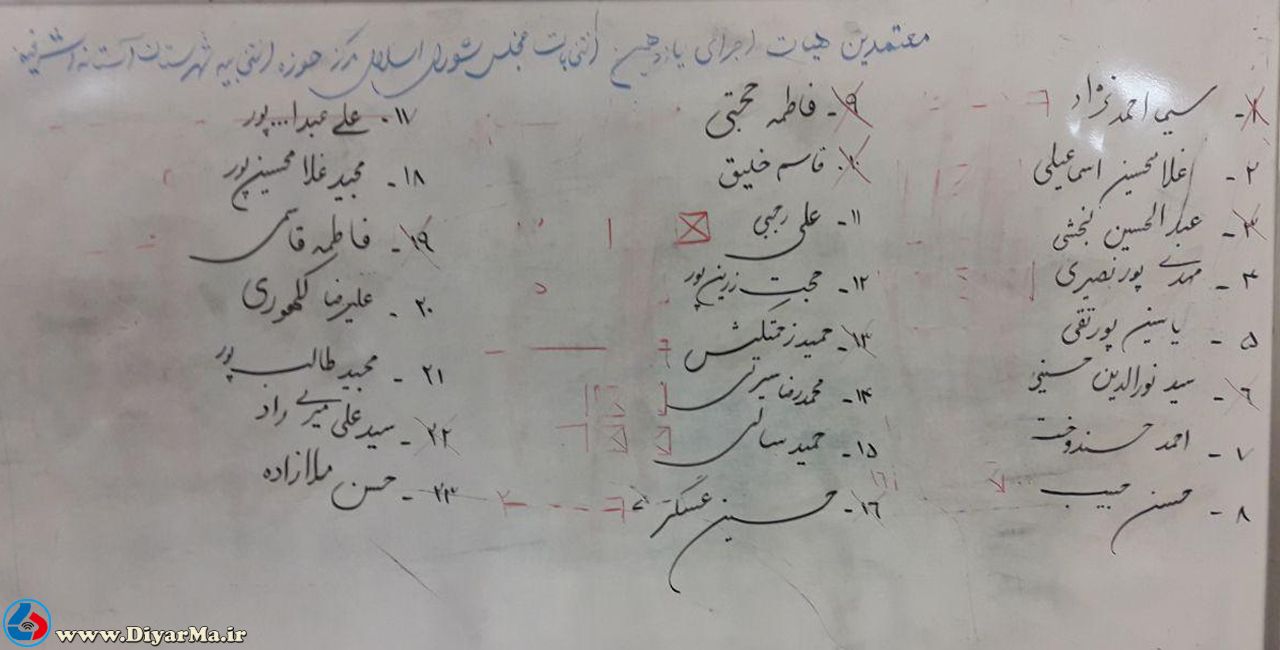 معتمدین هیات اجرای یازدهمین انتخابات مجلس شورای اسلامی مرکز حوزه انتخابیه شهرستان آستانه اشرفیه
۱- سیما احمد نژاد
۲- غلامحسین اسماعیلی
۳- عبدالحسین بخشی
۴- مهدی پور نصیری
۵- یاسین پورتقی
۶- سید نورالدین حسینی
۷- احمد حسندوخت
۸- حسن حبیب
۹- فاطمه حجتی
۱۰- قاسم خلیق
۱۱- علی رجبی
۱۲- حجت زرین پور
۱۳- حمید زحمتکش
۱۴- محمدرضا سیرتی
۱۵- حمید سالمی
۱۶- حسین عسگری
۱۷- علی عبدا...پور
۱۸- مجید غلامحسین پور
۱۹- فاطمه قاسمی
۲۰- علیرضا کلهوری
۲۱- مجید طالب پور
۲۲- سید علی میری راد
۲۳- حسن ملازاده
www.DiyarMa.ir